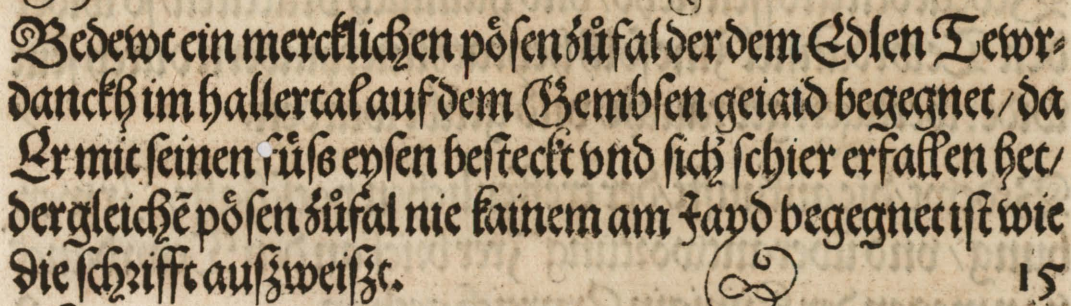 Bedewt ein mercklichen pösen zůfal der dem Edlen Tewr⸗
danckh im hallertal auf dem Gembsen geiaid begegnet / da
Er mit seinen füsß eysen besteckt vnd sich schier erfallen het /
dergleichẽ pösen zůfal nie kainem am Jayd begegnet ist wie
die schrifft auszweiszt.
15